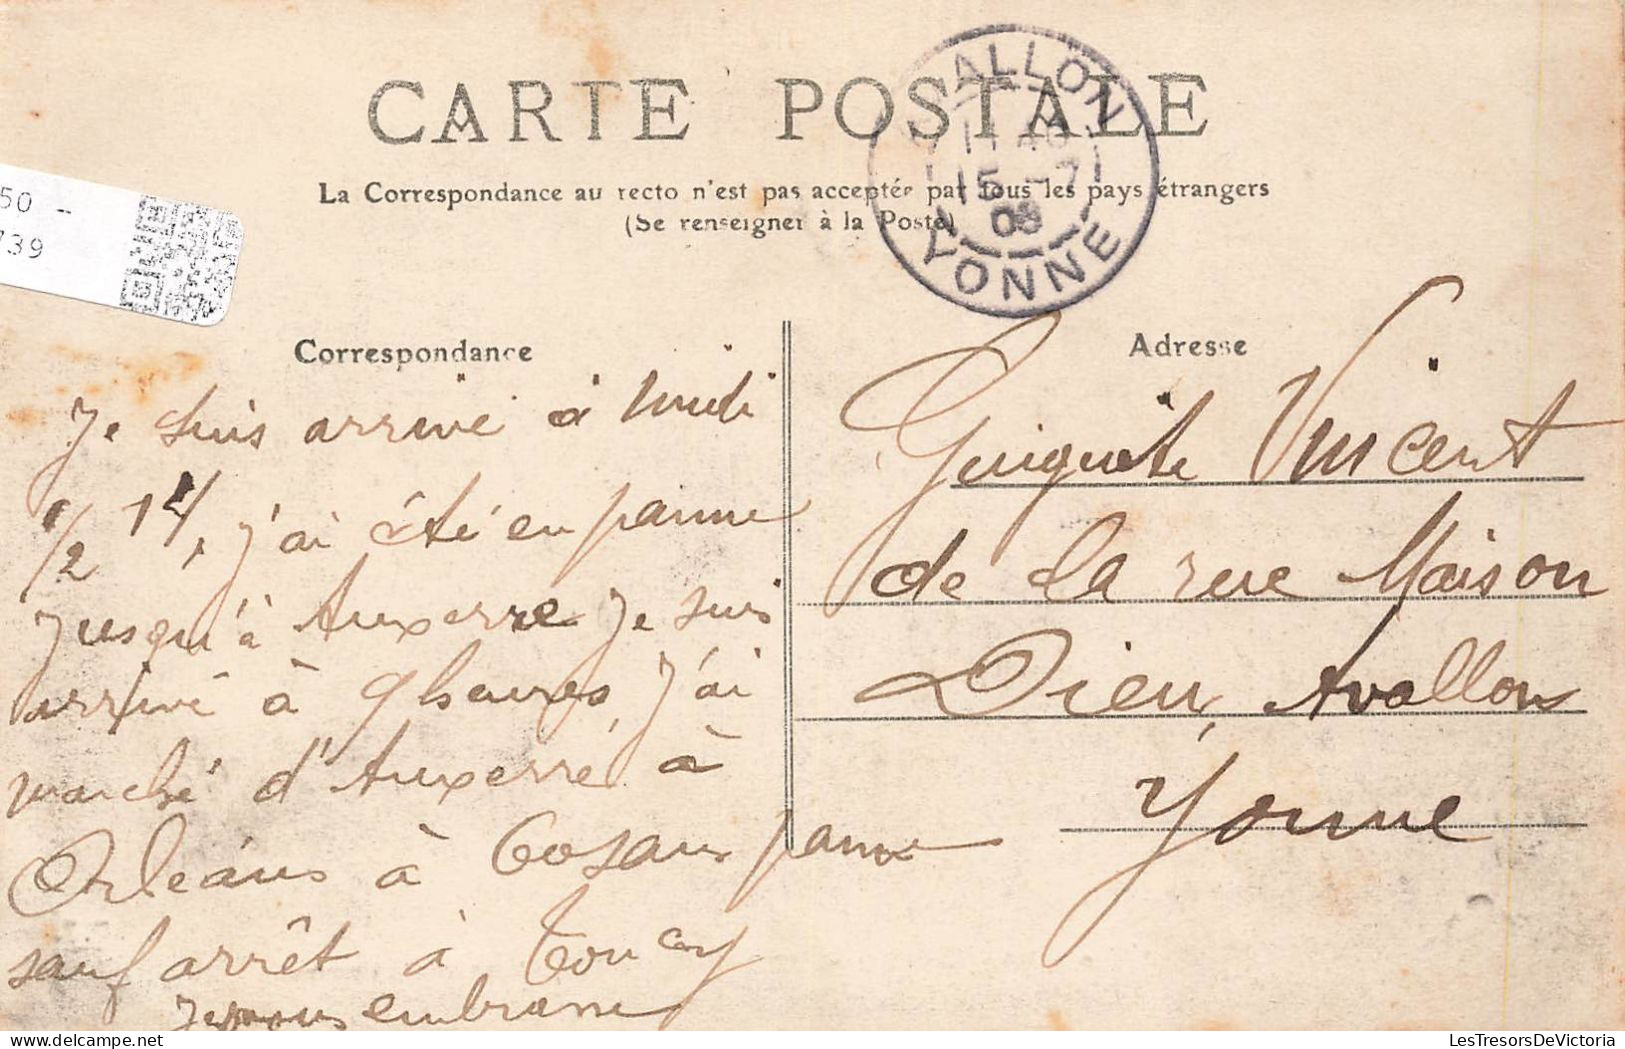 CARTE POSTALE
AVALLON
15 -7
08
YONNE
La Correspondance au recto n'est pas acceptée par tous les pays étrangers
(Se renseigner à la Poste)
50 -
739
Correspondance
Je suis arrivé à
1/2 14, j'ai été en panne
Jusqu'à Auxerre Je suis
arrivé à 9 heures, J'ai
marché d'Auxerre à
Orléans à 60 sans panne
sauf arrêt à Toucy
Je vous embrasse
Adresse
Vincent
de la rue Maison
Dieu, Avallon
Yonne
LesTresorsDeVictoria